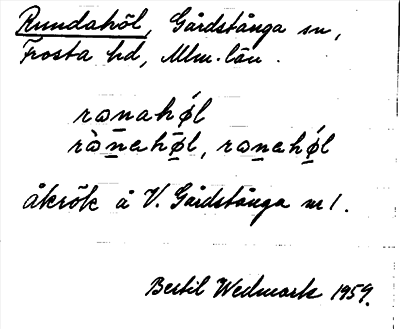 Rundahöl, Gårdstånga sn,
Frosta hd, Mlm. län.
rɷnahǿl
rɷ̀nahøl, rɷnahǿl
åkrök å V. Gårdstånga nr 1.
Bertil Wedmark 1959.